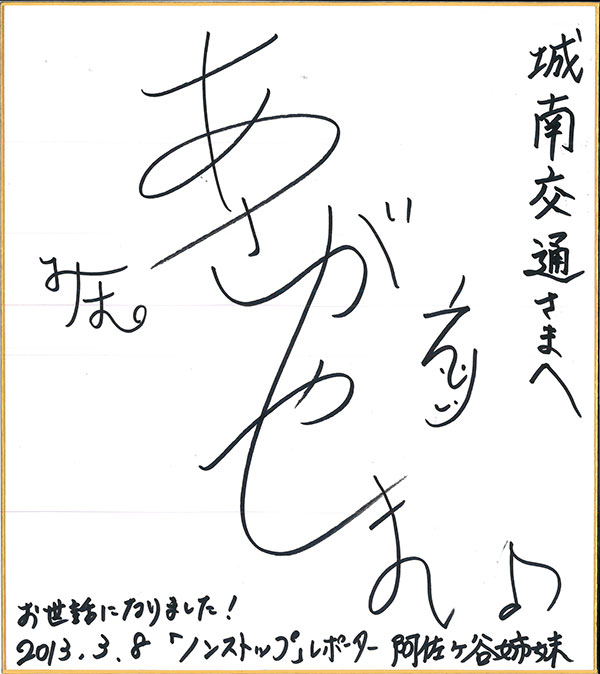 城南交通さまへ
あさがやしまい♪
えりこ
みほ
お世話になりました!
2013.3.8 「ノンストップ」レポーター 阿佐ヶ谷姉妹